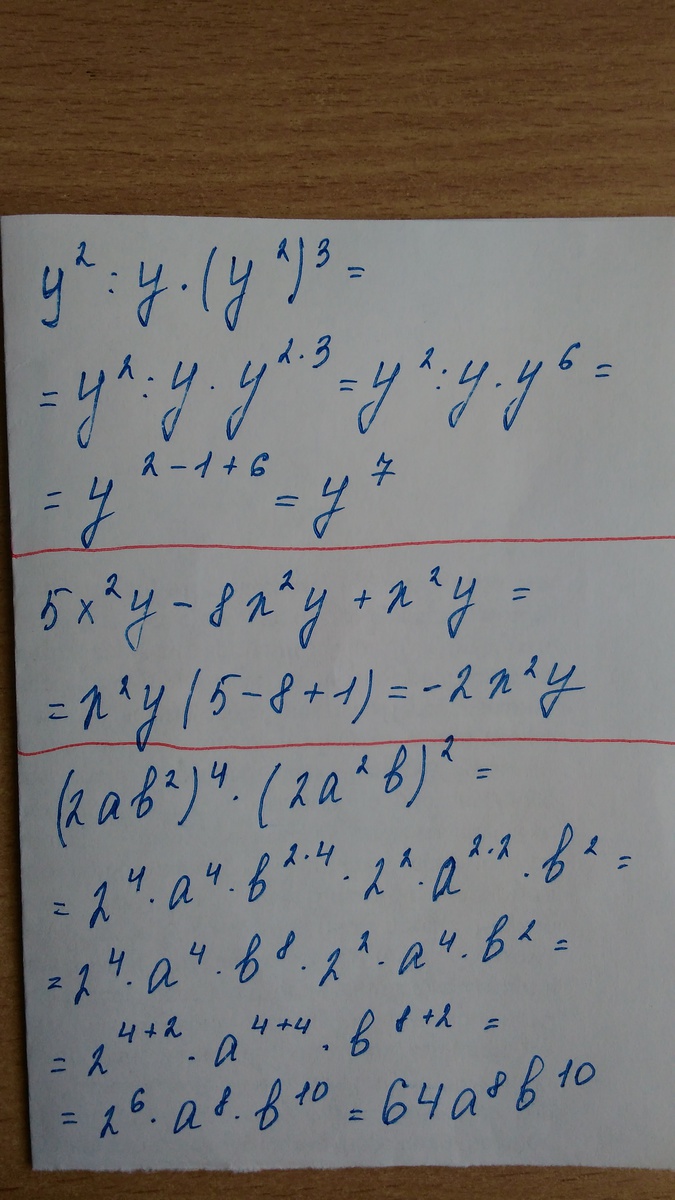 y² : y · (y²)³ =
= y² : y · y²·³ = y² : y · y⁶ =
= y²⁻¹⁺⁶ = y⁷
5x²y - 8x²y + x²y =
= x²y (5 - 8 + 1) = -2x²y
(2ab²)⁴ · (2a²b)² =
= 2⁴ · a⁴ · b²·⁴ · 2² · a²·² · b² =
= 2⁴ · a⁴ · b⁸ · 2² · a⁴ · b² =
= 2⁴⁺² · a⁴⁺⁴ · b⁸⁺² =
= 2⁶ · a⁸ · b¹⁰ = 64a⁸b¹⁰